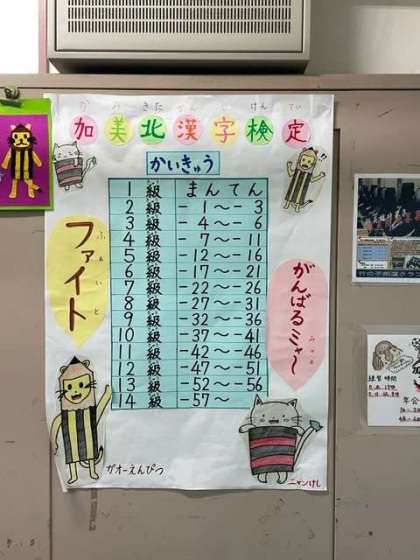 か み きた かん じ けん てい
加美北漢字検定
かいきゅう
1級 まんてん
2級 -1〜-3
3級 -4〜-6
4級 -7〜-11
5級 -12〜-16
6級 -17〜-21
7級 -22〜-26
8級 -27〜-31
9級 -32〜-36
10級 -37〜-41
11級 -42〜-46
12級 -47〜-51
13級 -52〜-56
14級 -57〜
ファイト
ふぁいと
がんばるミャ〜
みゃあ
ガオーえんぴつ
ニャンけし
練習時間